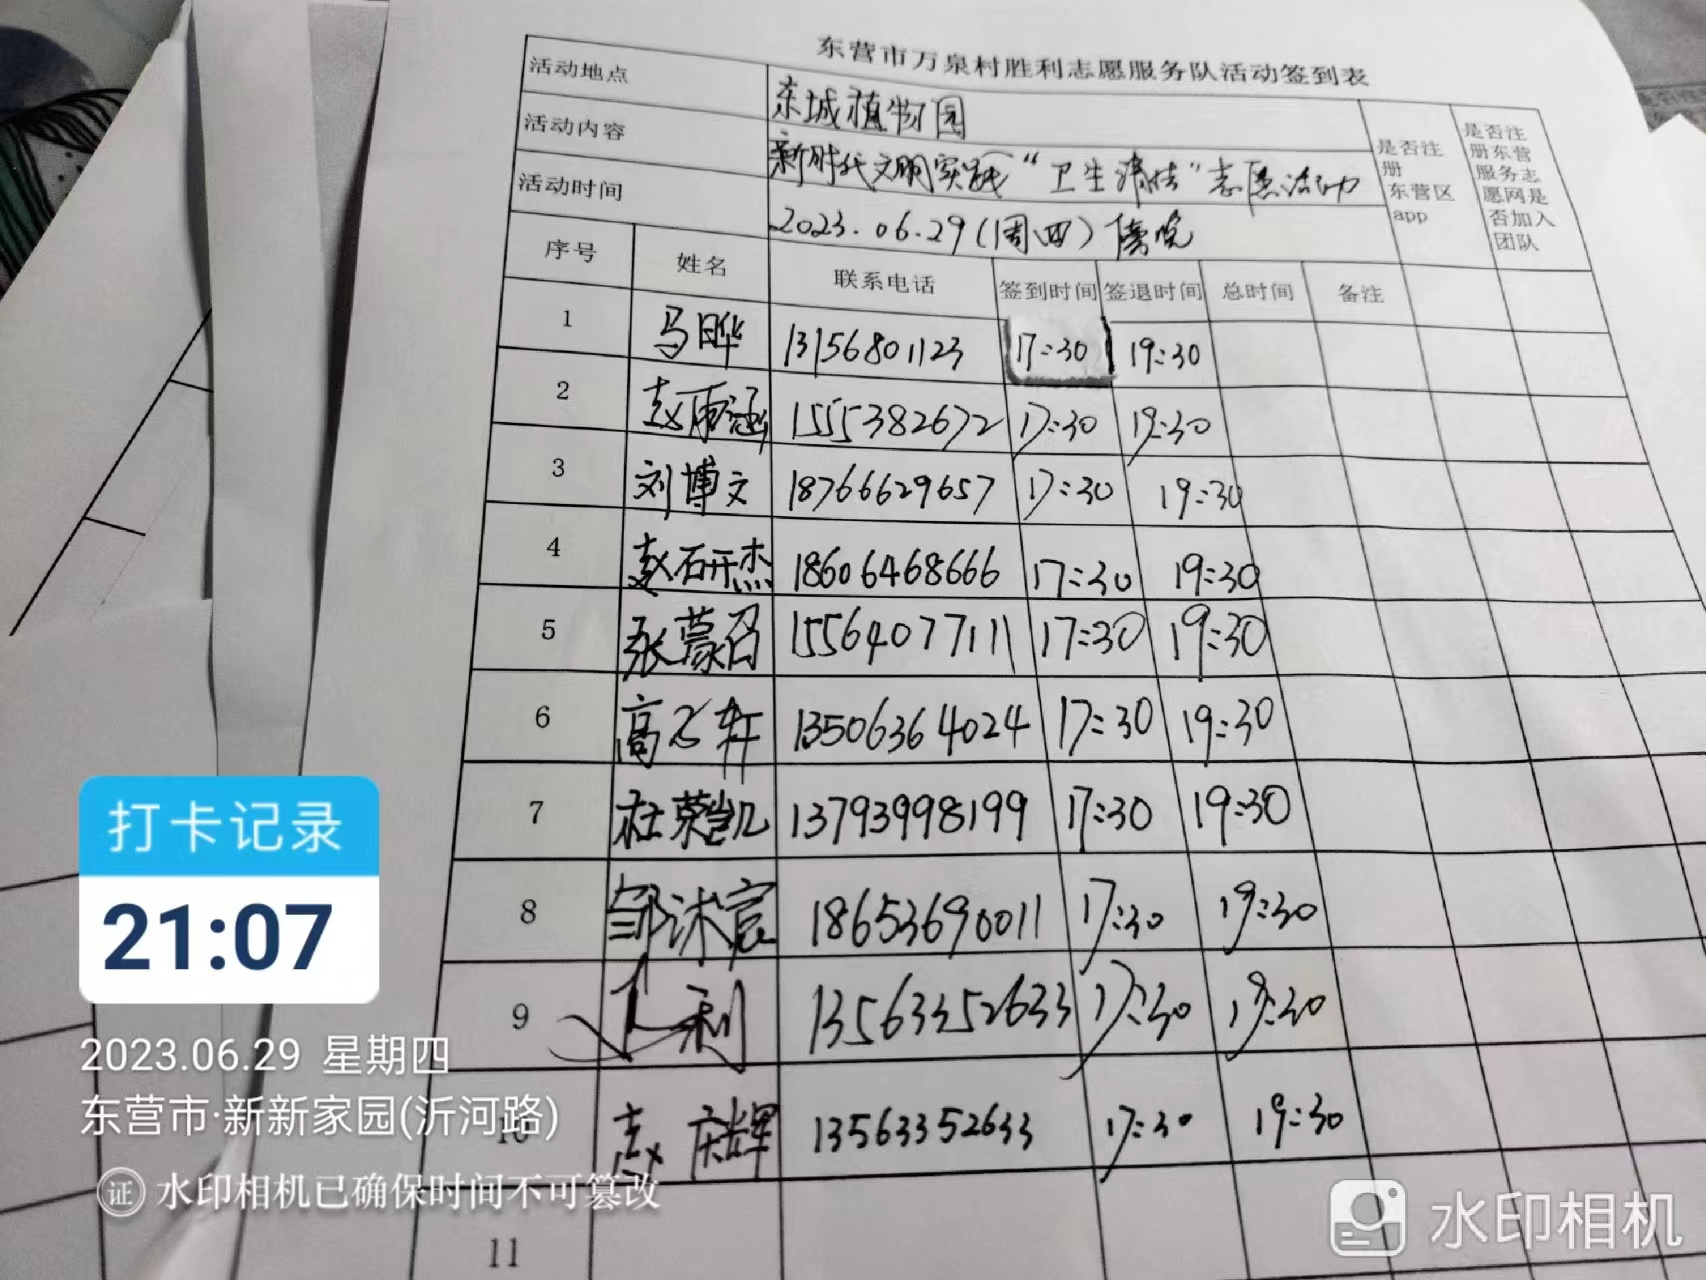 东营市万泉村胜利志愿服务队活动签到表
活动地点 东城植物园
活动内容 新时代文明实践“卫生清洁”志愿活动
活动时间 2023.06.29(周四)傍晚
是否注册东营区app
是否注册东营服务志愿网是否加入团队
序号 姓名 联系电话 签到时间 签退时间 总时间 备注
1 马晔 13156801123 17:30 19:30
2 赵雨涵 1555382672 17:30 19:30
3 刘博文 18766629657 17:30 19:30
4 赵研杰 18606468666 17:30 19:30
5 张蒙召 15564077111 17:30 19:30
6 高 轩 13506364024 17:30 19:30
7 杜荣凯 13793998199 17:30 19:30
8 邹沐宸 18653690011 17:30 19:30
9 利 13563352633 17:30 19:30
10 赵庆辉 13563352633 17:30 19:30
11
打卡记录
21:07
2023.06.29 星期四
东营市·新新家园(沂河路)
证 水印相机已确保时间不可篡改
水印相机